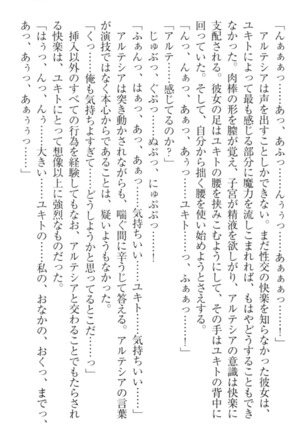 「んぅぅっ……！　あっ、あふっ……んぅぅーっ……！　あぁぁぁ……！」
　アルテシアは声を出すことしかできない。まだ性交の快楽を知らなかった彼女は、
ユキトによって最も感じる部分に魔力を流しこまれれば、もはやどうすることもでき
なかった。肉棒の形を膣が覚え、子宮が精液を欲しがり、アルテシアの意識は快楽に
支配される。彼女の足はユキトの腰を挟みこむようにして、その手はユキトの背中に
回っていた。そして、自分から拙く腰を使い始めようとさえする。
「んっ、んぁぁっ、あっ、あぅっ……ユキトーっ、ふぁぁっ……！」
「アルテシア……感じてるのか？」
　じゅぶっ、ぐぷっ……ぬぷっ、にゅぷぷっ……！
「ふぁんっ、はぁっ、あっ、あぁっ……気持ちいい……ユキト……気持ちいい……」
　アルテシアは突き動かされながらも、喘ぐ間に辛うじて答える。アルテシアの言葉
が演技ではなく本心からであることは、疑いようもなかった。
「くっ……俺も気持ちよすぎて……どうしようかと思ってるとこだ……っ」
　挿入以外のすべての行為を経験してもなお、アルテシアと交わることでもたらされ
る快楽は、ユキトにとって想像以上に強烈なものだった。
「はぅっ、んっ、んぅ……大きい……ユキトの……私の、おなかの、おくっ、までっ、
あっ、あぅっ、あぁぅぅっ……！」